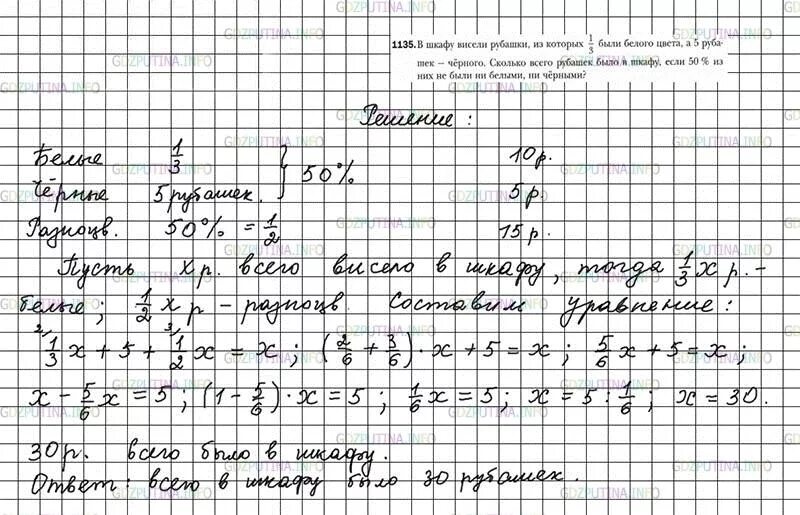 1135. В шкафу висели рубашки, из которых 1/3 были белого цвета, а 5 руба-
шек – чёрного. Сколько всего рубашек было в шкафу, если 50 % из
них не были ни белыми, ни чёрными?
Решение :
Белые 1/3 10 р.
Чёрные 5 рубашек. } 50% 5 р.
Разноцв. 50% = 1/2 15 р.
Пусть х р. всего висело в шкафу, тогда 1/3 х р. -
белые; 1/2 х р - разноцв. Составим уравнение:
2/ 1/3 х + 5 + 3/ 1/2 х = х ; (2/6 + 3/6) · х + 5 = х ; 5/6 х + 5 = х ;
х - 5/6 х = 5 ; (1 - 5/6) · х = 5 ; 1/6 х = 5 ; х = 5 : 1/6 ; х = 30.
30 р. всего было в шкафу.
Ответ : всего в шкафу было 30 рубашек.
GDZPUTINA.INFO